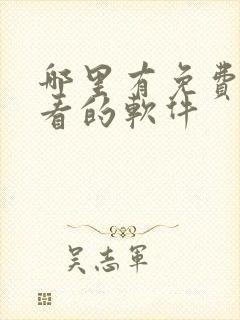 哪里有免费
看的软件
吴志军